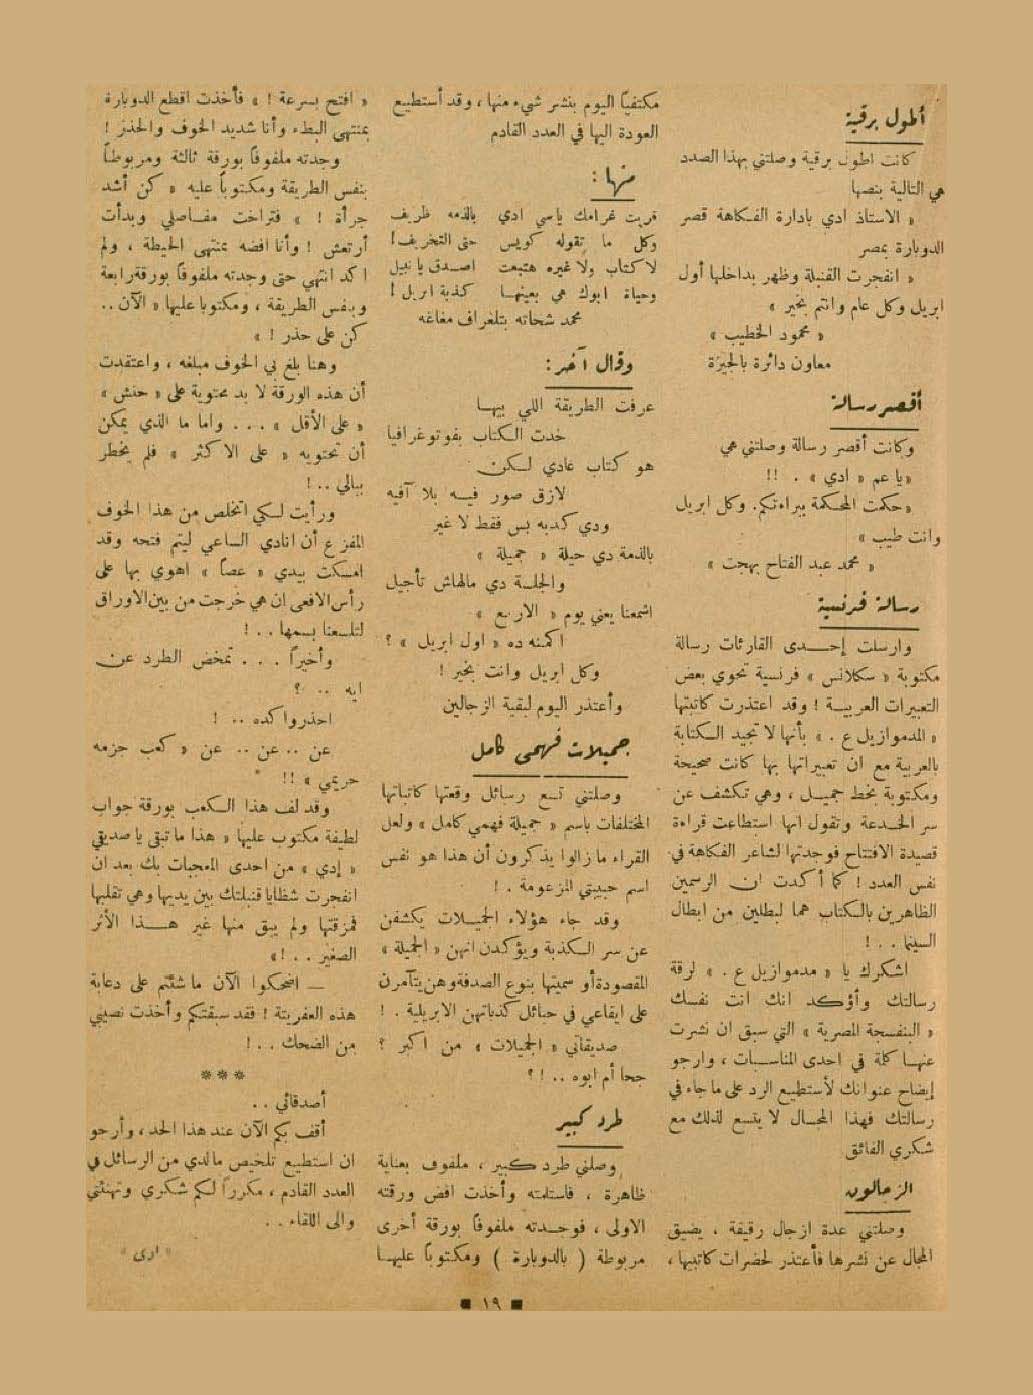 أطول برقية
كانت اطول برقية وصلتني بهذا الصدد
هي التالية بنصها
« الاستاذ ادي بادارة الفكاهة قصر
الدوبارة بمصر
« انفجرت القنبلة وظهر بداخلها أول
ابريل وكل عام وانتم بخير »
« محمود الخطيب »
معاون دائرة بالجيزة
أقصر رسالة
وكانت أقصر رسالة وصلتني هي
« يا عم « ادي » . !!
« حكمت المحكمة ببراءتكم. وكل ابريل
وانت طيب »
« محمد عبد الفتاح بهجت »
رسالة فرنسية
وارسلت إحدى القارئات رسالة
مكتوبة « سكلانس » فرنسية تحوي بعض
التعبيرات العربية ! وقد اعتذرت كاتبتها
« المدموازيل ع . » بأنها لا تجيد الكتابة
بالعربية مع ان تعبيراتها بها كانت صحيحة
ومكتوبة بخط جميل ، وهي تكشف عن
سر الخدعة وتقول انها استطاعت قراءة
قصيدة الافتتاح فوجدتها لشاعر الفكاهة في
نفس العدد ! كما أكدت ان الرسمين
الظاهرين بالكتاب هما لبطلين من ابطال
السينما . . !
اشكرك يا « مدموازيل ع . » لرقة
رسالتك وأؤكد انك انت نفسك
« البنفسجة المصرية » التي سبق ان نشرت
عنها كلمة في احدى المناسبات ، وارجو
إيضاح عنوانك لأستطيع الرد على ما جاء في
رسالتك فهذا المجال لا يتسع لذلك مع
شكري الفائق
الزجالون
وصلتني عدة ازجال رقيقة ، يضيق
المجال عن نشرها فأعتذر لحضرات كاتبيها ،
مكتفياً اليوم بنشر شيء منها ، وقد أستطيع
العودة اليها في العدد القادم
منها :
قريت غرامك ياسي ادي بالذمه ظريف
وكل ما تقوله كويس حتى التخريف !
لا كتاب ولا غيره هتبعت اصدق يا نبيل
وحياة ابوك هي بعينها كذبة ابريل !
محمد شحاته بتلغراف مغاغه
وقال آخر :
عرفت الطريقة اللي بيها
خدت الكتاب بفوتوغرافيا
هو كتاب عادي لكن
لازق صور فيه بلا آفيه
ودي كدبه بس فقط لا غير
بالذمة دي حيلة « جميلة »
والجلسة دي مالهاش تأجيل
اشمعنا يعني يوم « الاربع »
اكمنه ده « اول ابريل » ؟
وكل ابريل وانت بخير !
وأعتذر اليوم لبقية الزجالين
جميلات فهمي كامل
وصلتني تسع رسائل وقعتها كاتباتها
المختلفات باسم « جميلة فهمي كامل » ولعل
القراء ما زالوا يذكرون أن هذا هو نفس
اسم حبيبتي المزعومة . !
وقد جاء هؤلاء الجميلات يكشفن
عن سر الكذبة ويؤكدن انهن « الجميلة »
المقصودة أو سميتها بنوع الصدفة وهن يتآمرن
على ايقاعي في حبائل كذباتهن الابريلية . !
صديقاتي « الجميلات » من اكبر ؟
جحا أم ابوه . . ! ؟
طرد كبير
وصلني طرد كبير ، ملفوف بعناية
ظاهرة ، فاستلمته وأخذت افض ورقته
الاولى ، فوجدته ملفوفاً بورقة أخرى
مربوطة ( بالدوبارة ) ومكتوباً عليها
« افتح بسرعة ! » فأخذت اقطع الدوبارة
بمنتهى البطء وأنا شديد الخوف والحذر !
وجدته ملفوفاً بورقة ثالثة ومربوطاً
بنفس الطريقة ومكتوباً عليه « كن أشد
جرأة ! » فتراخت مفاصلي وبدأت
أرتعش ! وأنا افضه بمنتهى الحيطة ، ولم
اكد انتهي حتى وجدته ملفوفاً بورقة رابعة
وبنفس الطريقة ، ومكتوبا عليها « الآن ..
كن على حذر ! »
وهنا بلغ بي الخوف مبلغه ، واعتقدت
أن هذه الورقة لا بد محتوية على « حنش »
« على الأقل » . . . واما ما الذي يمكن
أن تحتويه « على الاكثر » فلم يخطر
ببالي .. !
ورأيت لكي اتخلص من هذا الخوف
المفزع أن انادي الساعي ليتم فتحه وقد
امسكت بيدي « عصا » اهوي بها على
رأس الافعى ان هي خرجت من بين الاوراق
لتلسعنا بسمها . . !
وأخيراً . . . تمخض الطرد عن
ايه .. ؟
احذروا كده .. !
عن .. عن .. عن « كعب جزمه
حريمي » !!
وقد لف هذا الكعب بورقة جواب
لطيفة مكتوب عليها « هذا ما تبقى يا صديقي
« إدي » من احدى المعجبات بك بعد ان
انفجرت شظايا قنبلتك بين يديها وهي تقلبها
فمزقتها ولم يبق منها غير هذا الأثر
الصغير . . ! »
— اضحكوا الآن ما شئتم على دعابة
هذه العفريتة ! فقد سبقتكم وأخذت نصيبي
من الضحك . . !
***
أصدقائي . .
أقف بكم الآن عند هذا الحد ، وأرجو
ان استطيع تلخيص ما لدي من الرسائل في
العدد القادم ، مكرراً لكم شكري وتهنئتي
والى اللقاء . .
« ادى »
■ ١٩ ■